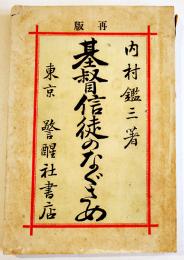 版再
内村鑑三著
基督信徒のなぐさめ
東京 警醒社書店